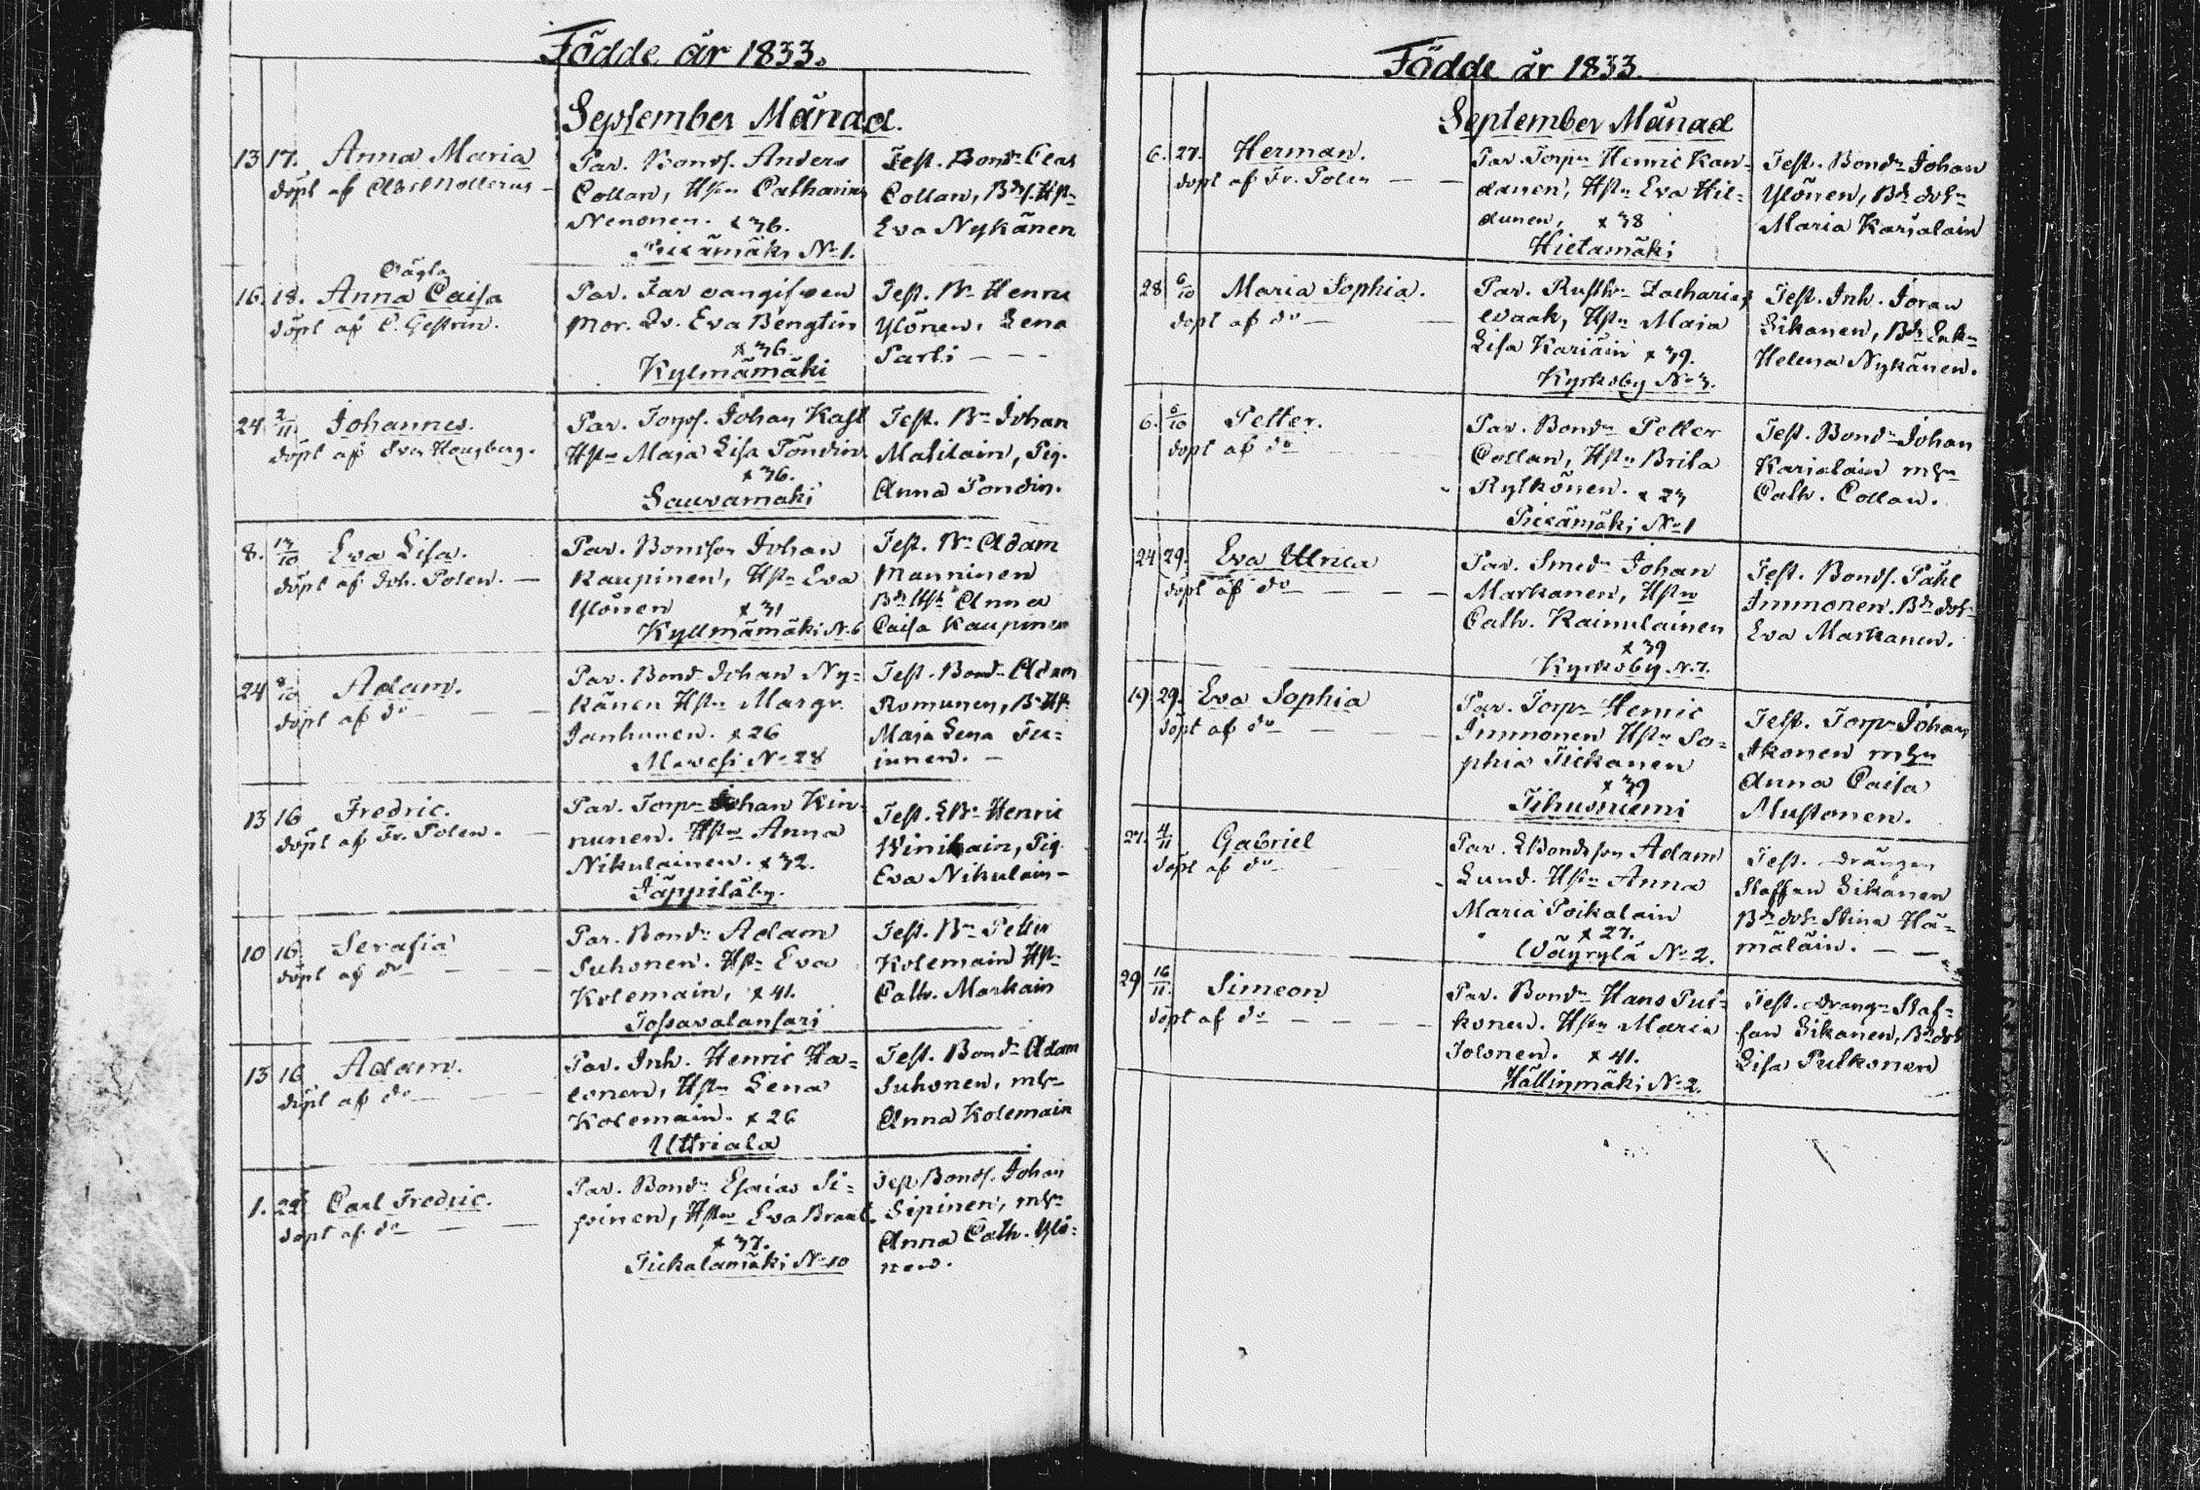 Födde år 1833.
September Månad.
13 17. Anna Maria
döpt af Abr. Mollerus
Par. Bonds. Anders
Collan, Hstr Catharina
Nenonen. x 36.
Pieksämäki No 1.
Test. Bond. Clas
Collan, Bds. Hstr
Eva Nykänen
Oägta
16. 18. Anna Caisa
döpt af C. Gestrin.
Par. Far oangifven
Mor. Qv. Eva Bengtin
x 36.
Kylmämäki
Test. Bn Henric
Ylönen, Lena
Parti
24 2/11 Johannes.
döpt af
Par. Torps. Johan Kast
Hstr Maja Lisa Pöndin
x 36.
Sauvamäki
Test. Bn Johan
Matilain, Pig.
Anna Pondin.
8. 13/10 Eva Lisa.
döpt af Joh. Polen.
Par. Bondson Johan
Kaupinen, Hstr Eva
Ylönen x 31
Kyllmämäki N. 6
Test. Bn Adam
Manninen
Bd. Hstr Anna
Caisa Kaupinen
24 8/10 Adam.
döpt af do
Par. Bond. Johan Ny=
känen Hstr Margr.
Janhunen. x 26
Mavesi No 28
Test. Bond. Adam
Romunen, B. Hstr
Maja Lena
innen.
13 16 Fredric.
döpt af Fr. Polen.
Par. Torpr Johan Kin=
nunen. Hstr Anna
Nikulainen. x 32.
Jäppiläby.
Test. LBr Henric
Winikain, Pig.
Eva Nikulain
10 16 Serafia
döpt af do
Par. Bondn Adam
Suhonen. Hstr Eva
Kolemain, x 41.
Tossavalansari
Test. Bn Petter
Kolemain Hstr
Cath. Markain
13 16 Adam.
döpt af do
Par. Inh. Henric Ha=
lonen, Hstr Lena
Kolemain. x 26
Uttriala
Test. Bondn Adam
Suhonen, mhu
Anna Kolemain
1. 22 Carl Fredric.
döpt af do
Par. Bondn Esaias Si=
pinen, Hstr Eva Braxl.
x 37.
Tiekalamäki No 10
Test Bonds. Johan
Sipinen, mhu
Anna Cath. Ylö=
nen.
Födde år 1833.
September Månad
6. 27. Herman.
döpt af Fr. Polen
Par. Torpr Henric Kan=
danen, Hstr Eva Hil=
dunen, x 38
Hietamäki
Test. Bondn Johan
Ylönen, Bd. dotr
Maria Karjalain
28 6/10 Maria Sophia.
döpt af do
Par. Rusth. Zacharias
evaak, Hstr Maja
Lisa Kariäin x 39.
Kyrkoby No 3.
Test. Inh. Göran
Likanen, Bd.
Helena Nykänen.
6. 6/10 Petter.
döpt af do
Par. Bondn Petter
Collan, Hstr Brita
Rytkönen. x 23
Pieksämäki No 1
Test. Bondn Johan
Karialain mhu
Cath. Collan.
24 29. Eva Ulrica
döpt af do
Par. Smedn Johan
Markanen, Hstr
Cath. Rainulainen
x 39
Kyrkoby N. 7.
Test. Bonds. Påhl
Immonen. Bd. dotr
Eva Markanen.
19. 29. Eva Sophia
döpt af do
Par. Torpr Henric
Immonen Hstr So=
phia Tickanen
x 39
Tihusniemi
Test. Torpr Johan
Ikonen mhu
Anna Caisa
Mustonen.
27. 4/11 Gabriel
döpt af do
Par. LBondeson Adam
Lund. Hstr Anna
Maria Poikalain
x 27.
Wäyrylä No 2.
Test. drängen
Staffan Likanen
Bd. dotr Stina Hä=
mäläin.
29 16/11. Simeon
döpt af do
Par. Bondn Hans Pul=
konen. Hstr Maria
Tolonen. x 41.
Hällinmäki No 2.
Test. drängn Staf=
fan Likanen, Bd. dotr
Lisa Pulkonen